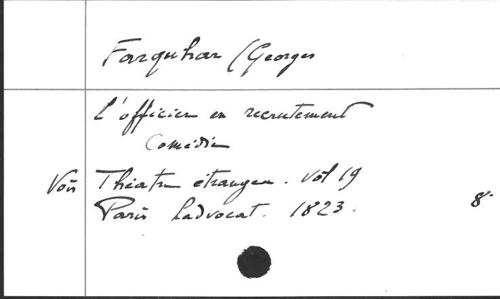 Farquhar (Georges
L'officier en recrutement
Comédie
Voir Théatre étranger. Vol 19
Paris Ladvocat. 1823. 8°